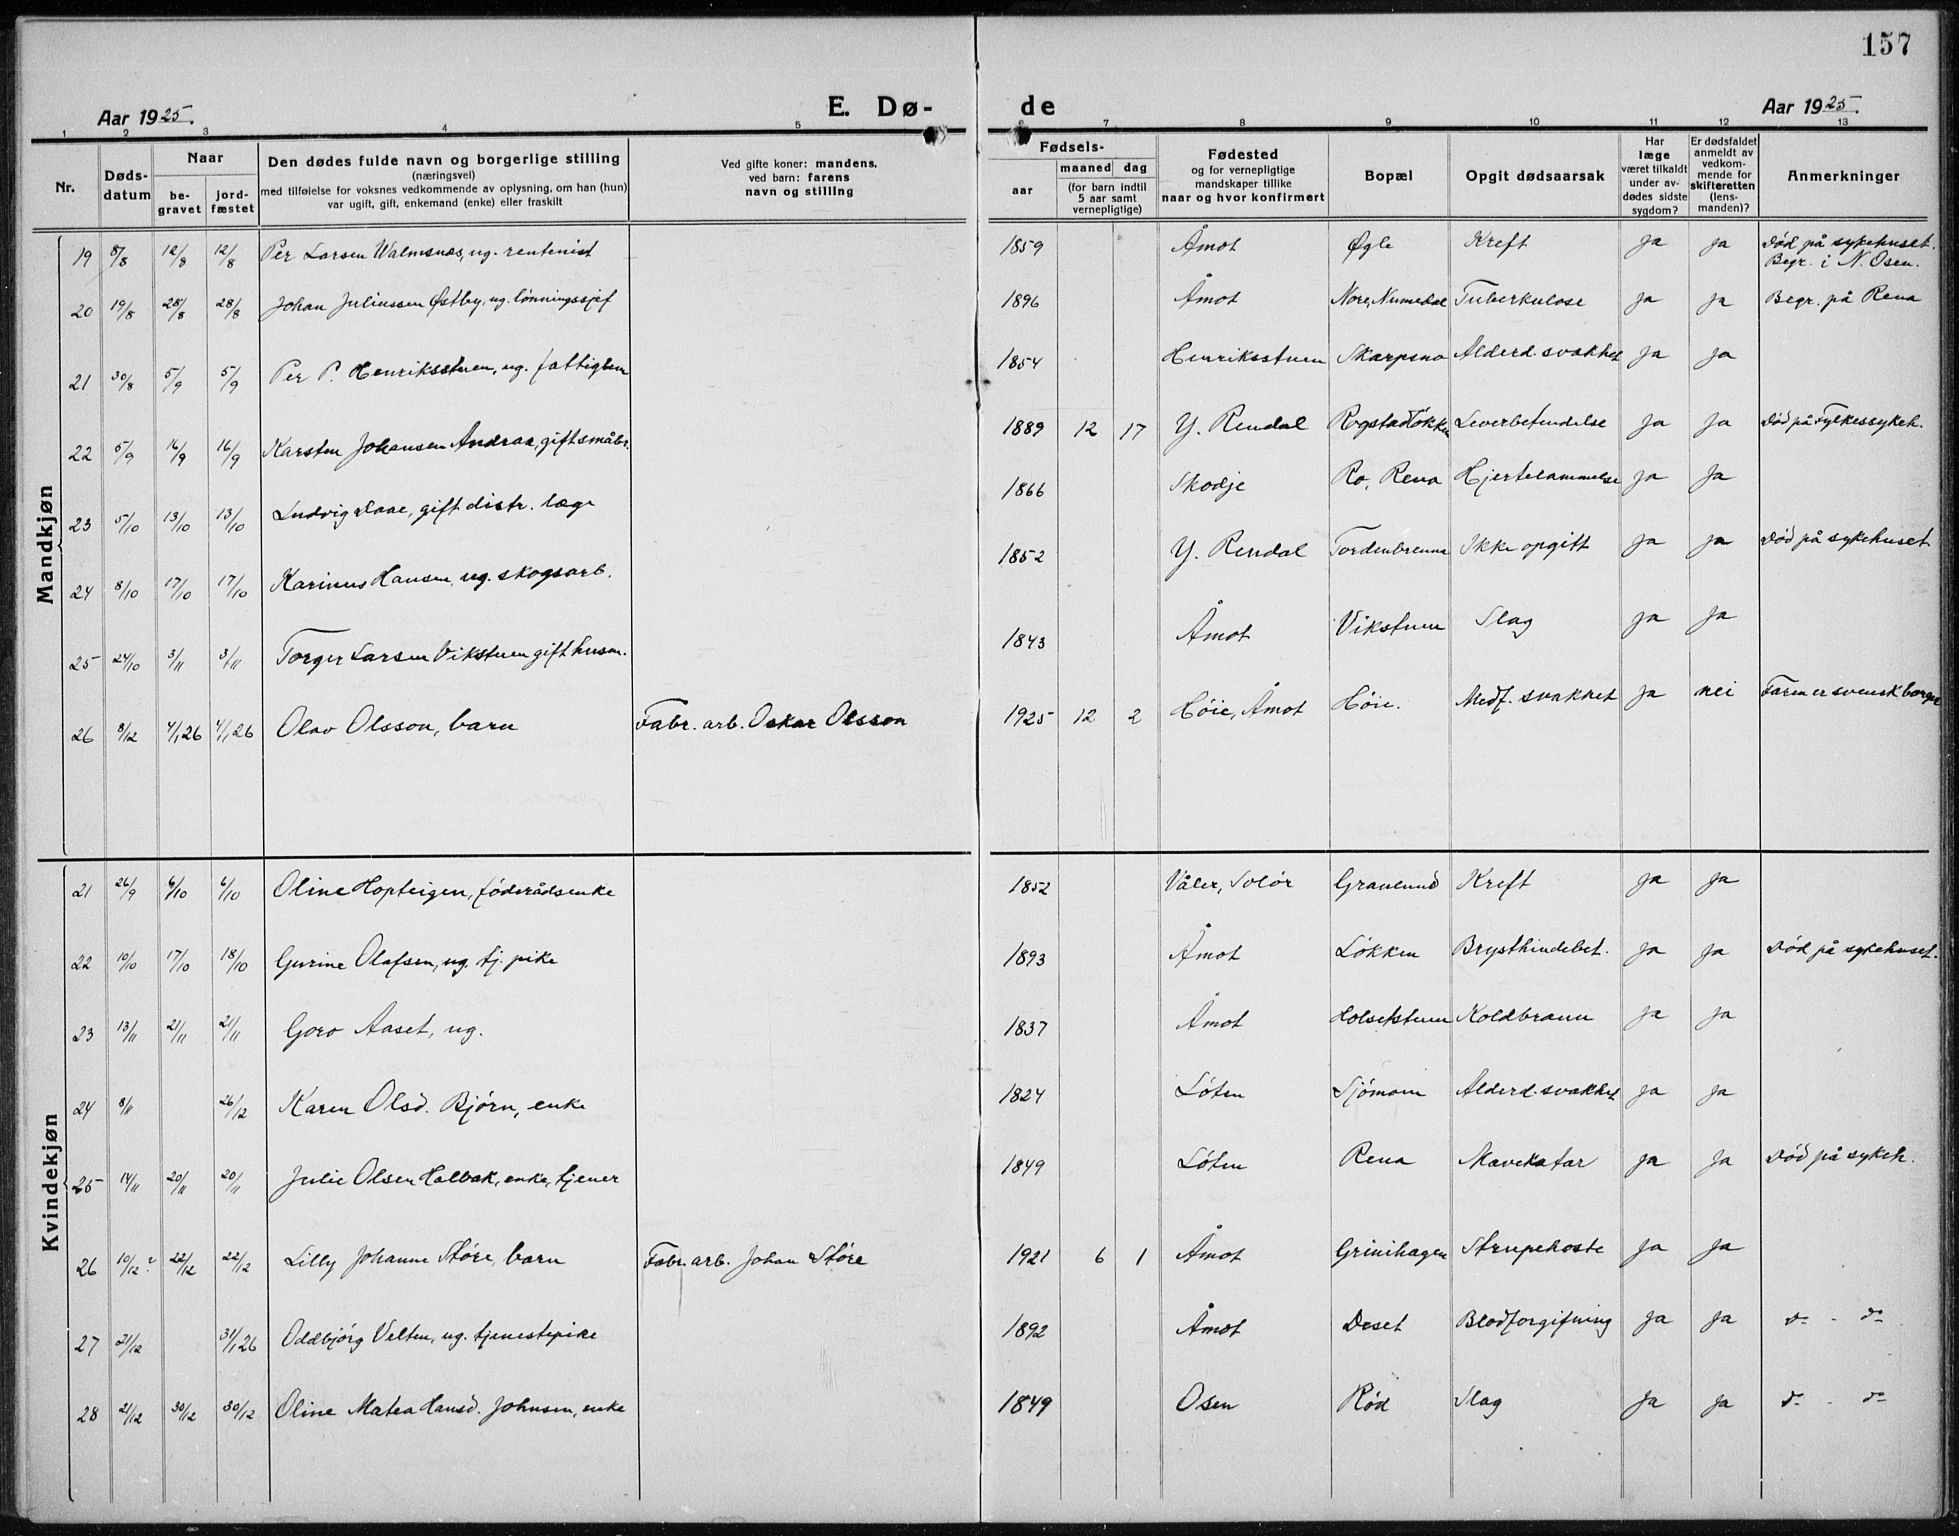 157
Aar 1925. E. Dø- de Aar 1925.
1 2 3 4 5 6 7 8 9 10 11 12 13
Nr. Døds-datum Naar be-gravet jord-fæstet Den dødes fulde navn og borgerlige stilling (næringsvei) med tilføielse for voksnes vedkommende av oplysning, om han (hun) var ugift, gift, enkemand (enke) eller fraskilt Ved gifte koner: mandens, ved barn: farens navn og stilling Fødsels- aar maaned dag (for barn indtil 5 aar samt vernepligtige) Fødested og for vernepligtige mandskaper tillike naar og hvor konfirmert Bopæl Opgit dødsaarsak Har læge været tilkaldt under av-dødes sidste sygdom? Er dødsfaldet anmeldt av vedkom-mende for skifteretten (lens-manden)? Anmerkninger
Mandkjøn
19 8/8 12/8 12/8 Per Larsen Walmsnæs, ug. rentenist 1859 Åmot Øgle Kreft ja ja Død på sykehuset. Begr. i N. Osen.
20 19/8 28/8 28/8 Johan Juliussen Østby, ug. lönningssjef 1896 Åmot Nore, Numedal Tuberkulose ja ja Begr. på Rena
21 30/8 5/9 5/9 Per P. Henriksstuen, ug. fattiglem 1854 Henriksstuen Skarpsno Alderd. svakhet ja ja
22 5/9 16/9 16/9 Karsten Johansen Andraa, gift småbr. 1889 12 17 Y. Rendal Rogstadløkken Leverbetendelse ja ja Død på Fylkessykeh.
23 5/10 13/10 13/10 Ludvig Daae, gift distr. læge 1866 Skodje Ro, Rena Hjertelammelse ja ja
24 8/10 17/10 17/10 Karinus Hansen, ug. skogsarb. 1852 Y. Rendal Tordenbrenna Ikke opgitt ja ja Död på sykehuset
25 24/10 3/11 3/11 Torger Larsen Vikstuen gift husm. 1843 Åmot Vikstuen Slag ja ja
26 8/12 4/1 26 4/1 26 Olav Olsson, barn Fabr. arb. Oskar Olsson 1925 12 2 Höie, Åmot Höie. Medf. svakhet ja nei Faren er svensk borger
Kvindekjøn
21 26/9 6/10 6/10 Oline Hopteigen, föderådsenke 1852 Våler, Solör Graalund Kreft ja ja
22 10/10 17/10 18/10 Gurine Olafsen, ug. tj. pike 1893 Åmot Løkken Brysthindebet. ja ja Död på sykehuset.
23 13/11 21/11 21/11 Goro Aaset, ug. 1837 Åmot Holsekstuen Koldbrann ja ja
24 8/11 26/12 Karen Olsd. Bjørn, enke 1824 Löten Sjömoen Alderd. svakhet ja ja
25 14/11 20/11 20/11 Julie Olsen Holbak, enke, tjener 1849 Löten Rena Mavekatar ja ja Död på sykeh.
26 10/12? 22/12 22/12 Lilly Johanne Støre, barn Fabr. arb. Johan Støre 1921 6 1 Åmot Grinihagen Strupehoste ja ja
27 21/12 31/1 26 Oddbjörg Velten, ug. tjenestepike 1892 Åmot Deset Blodforgiftning ja ja do - do
28 21/12 30/12 30/12 Oline Matea Hansd. Johnsen, enke 1849 Osen Rød Slag ja ja do - do